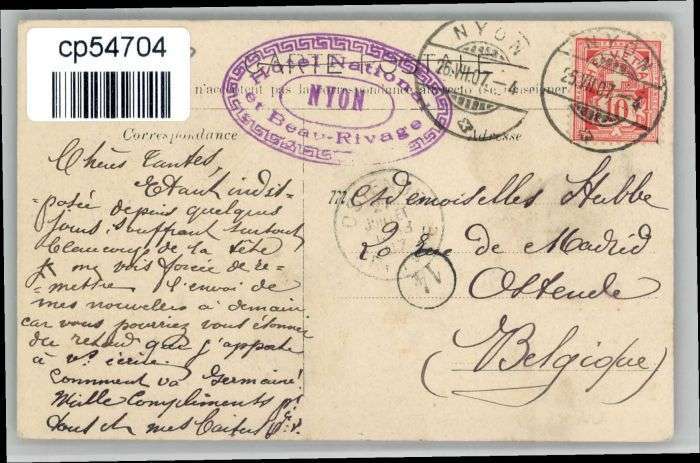 cp54704
CARTE POSTALE
Hôtel National
NYON
et Beau-Rivage
NYON
25.VII.07.-4
NYON
25.VII.07.-4
n'acceptent pas la correspondance au recto (se renseigner
Correspondance
Adresse
Chères Tantes,
Etant indis-
-posée depuis quelques
jours, souffrant surtout
beaucoup de la tête
je me vois forcée de re-
-mettre l'envoi de
mes nouvelles à demain
car vous pourriez vous étonner
du retard que j'apporte
à vs écrire.
Comment va Germaine?
Mille Compliments pr
tous et mes
Mesdemoiselles Hubbe
20 rue de Madrid
Ostende
(Belgique)
14
10